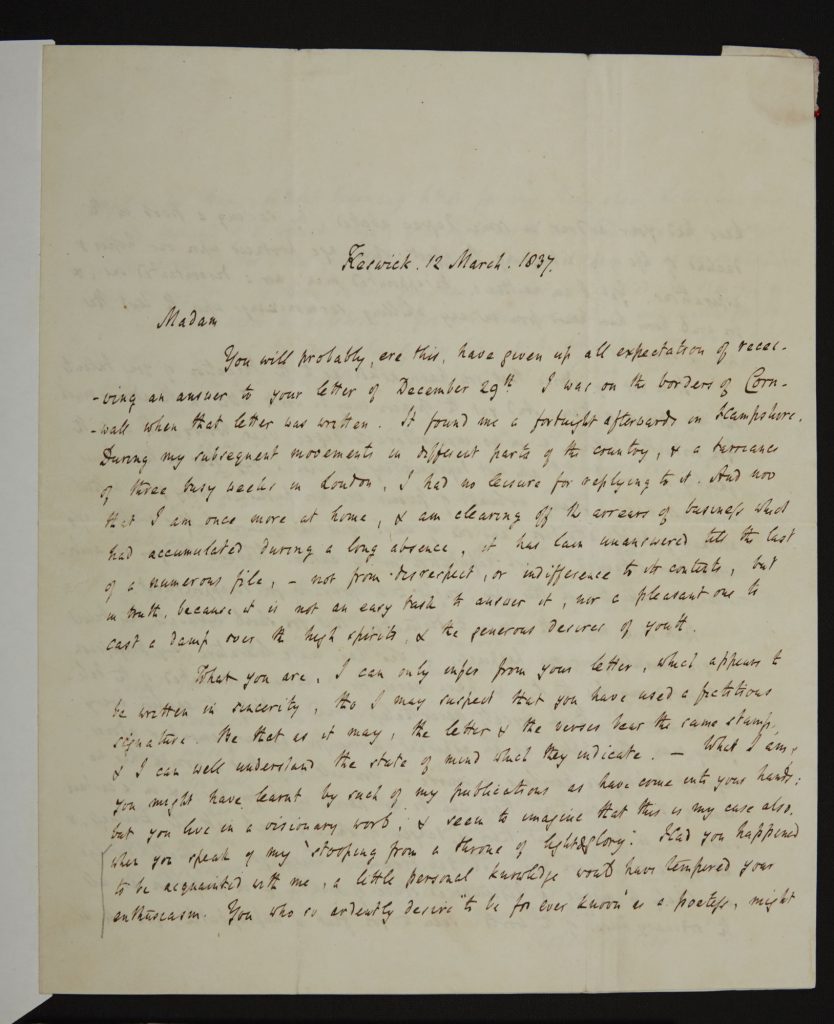 Keswick. 12 March. 1837.
Madam
You will probably, ere this, have given up all expectation of recei-
-ving an answer to your letter of December 29th. I was on the borders of Corn-
-wall when that letter was written. It found me a fortnight afterwards in Hampshire.
During my subsequent movements in different parts of the country, & a tarriance
of three busy weeks in London, I had no leisure for replying to it. And now
that I am once more at home, & am clearing off the arrears of business which
had accumulated during a long absence, it has lain unanswered till the last
of a numerous file, – not from disrespect, or indifference to its contents, but
in truth, because it is not an easy task to answer it, nor a pleasant one to
cast a damp over the high spirits, & the generous desires of youth.
What you are, I can only infer from your letter, which appears to
be written in sincerity, tho I may suspect that you have used a fictitious
signature. Be that as it may, the letter & the verses bear the same stamp,
& I can well understand the state of mind which they indicate. – What I am,
you might have learnt by such of my publications as have come into your hands:
but you live in a visionary world, & seem to imagine that this is my case also,
when you speak of my "stooping from a throne of light & glory". Had you happened
to be acquainted with me, a little personal knowledge would have tempered your
enthusiasm. You who so ardently desire "to be for ever known" as a poetess, might